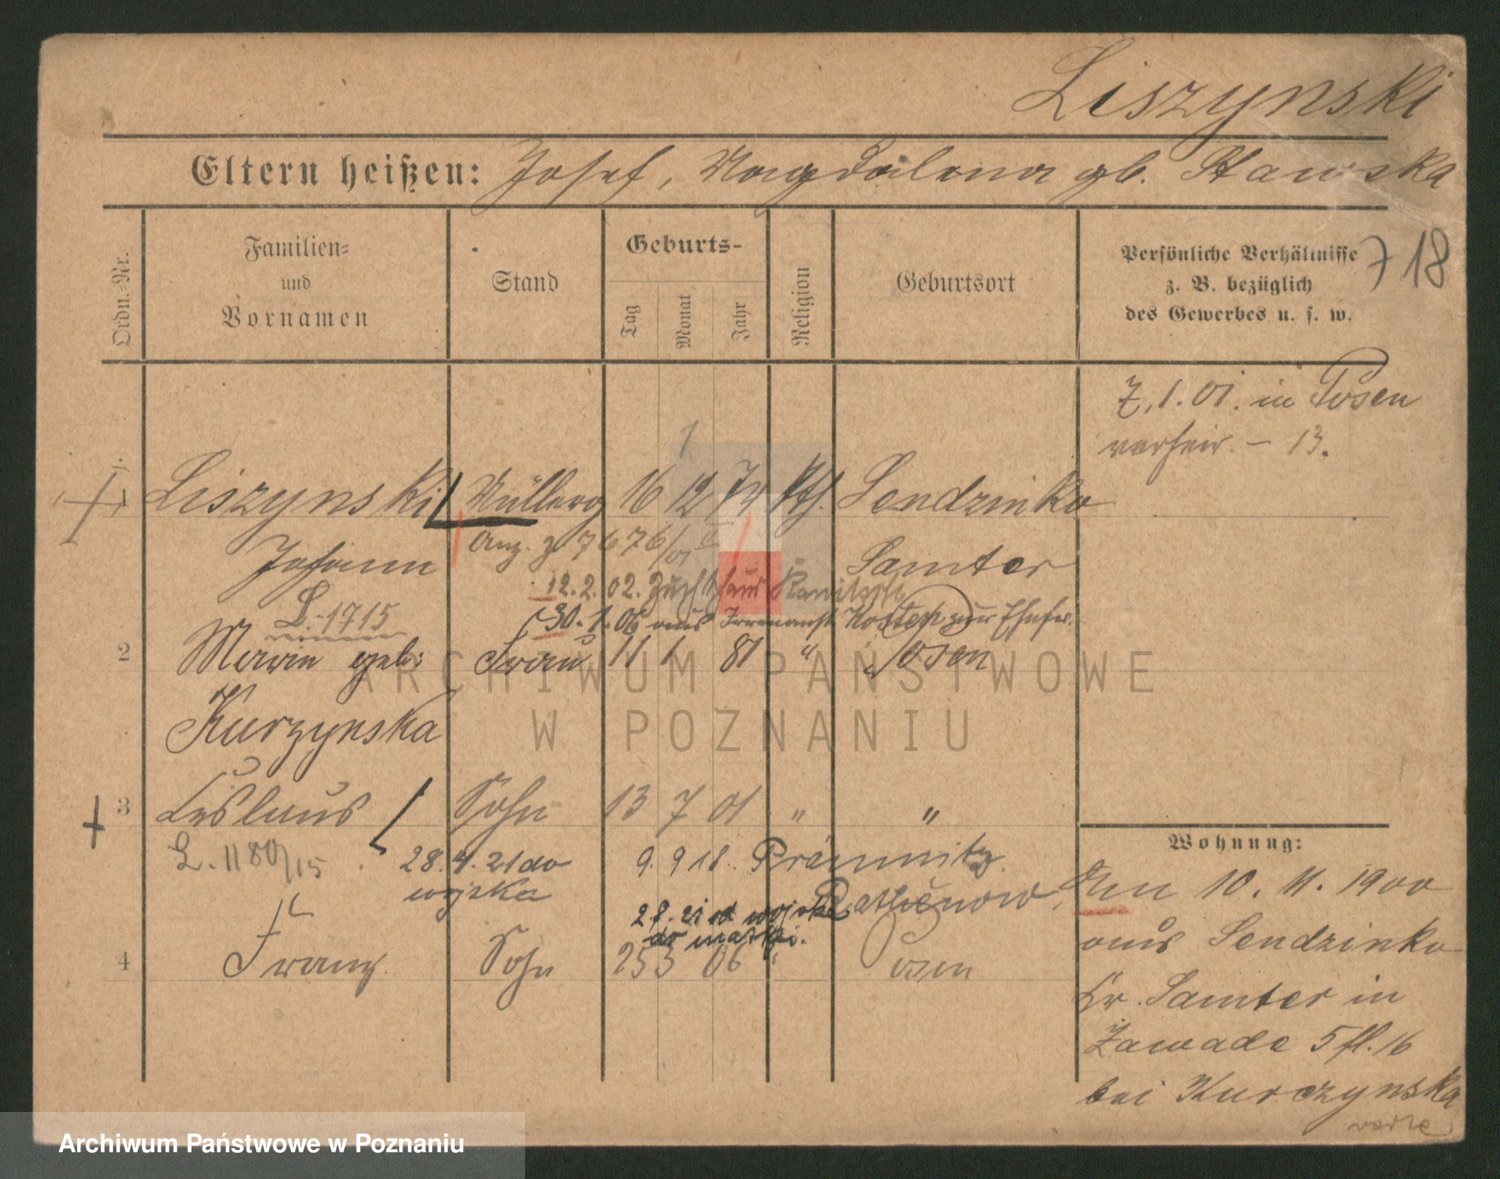 Liszynski
Eltern heißen: Josef, Magdalena gb. Stawska
Ordn.-Nr.
Familien-
und
Vornamen
Stand
Geburts-
Tag
Monat
Jahr
Religion
Geburtsort
Persönliche Verhältnisse
z. B. bezüglich
des Gewerbes u. s. w.
718
7.1.01. in Posen
verheir. – 13.
1
1 Liszynski Müllerg 16 12 74 kth. Sendzinko
Johann
Samter
12.2.02. Zuchthaus
L. 1715
30.1.06 aus Irrenanst. Kosten zur Ehefr.
2 Marie geb: Frau 11 1 81 " Posen
Kurzynska
3 Ceslaus Sohn 13 7 01 " "
L. 1180/15
28.4.21 do
wojska
9. 9 18. Prämnitz
Rathenow
28. 21 od wojska
do matki.
4 Franz Sohn 25 3 06 " Posen
Wohnung:
Am 10. 11. 1900
aus Sendzinko
Kr. Samter in
Zawade 5 fl. 16
bei Kurczynska
ARCHIWUM PAŃSTWOWE
W POZNANIU
Archiwum Państwowe w Poznaniu